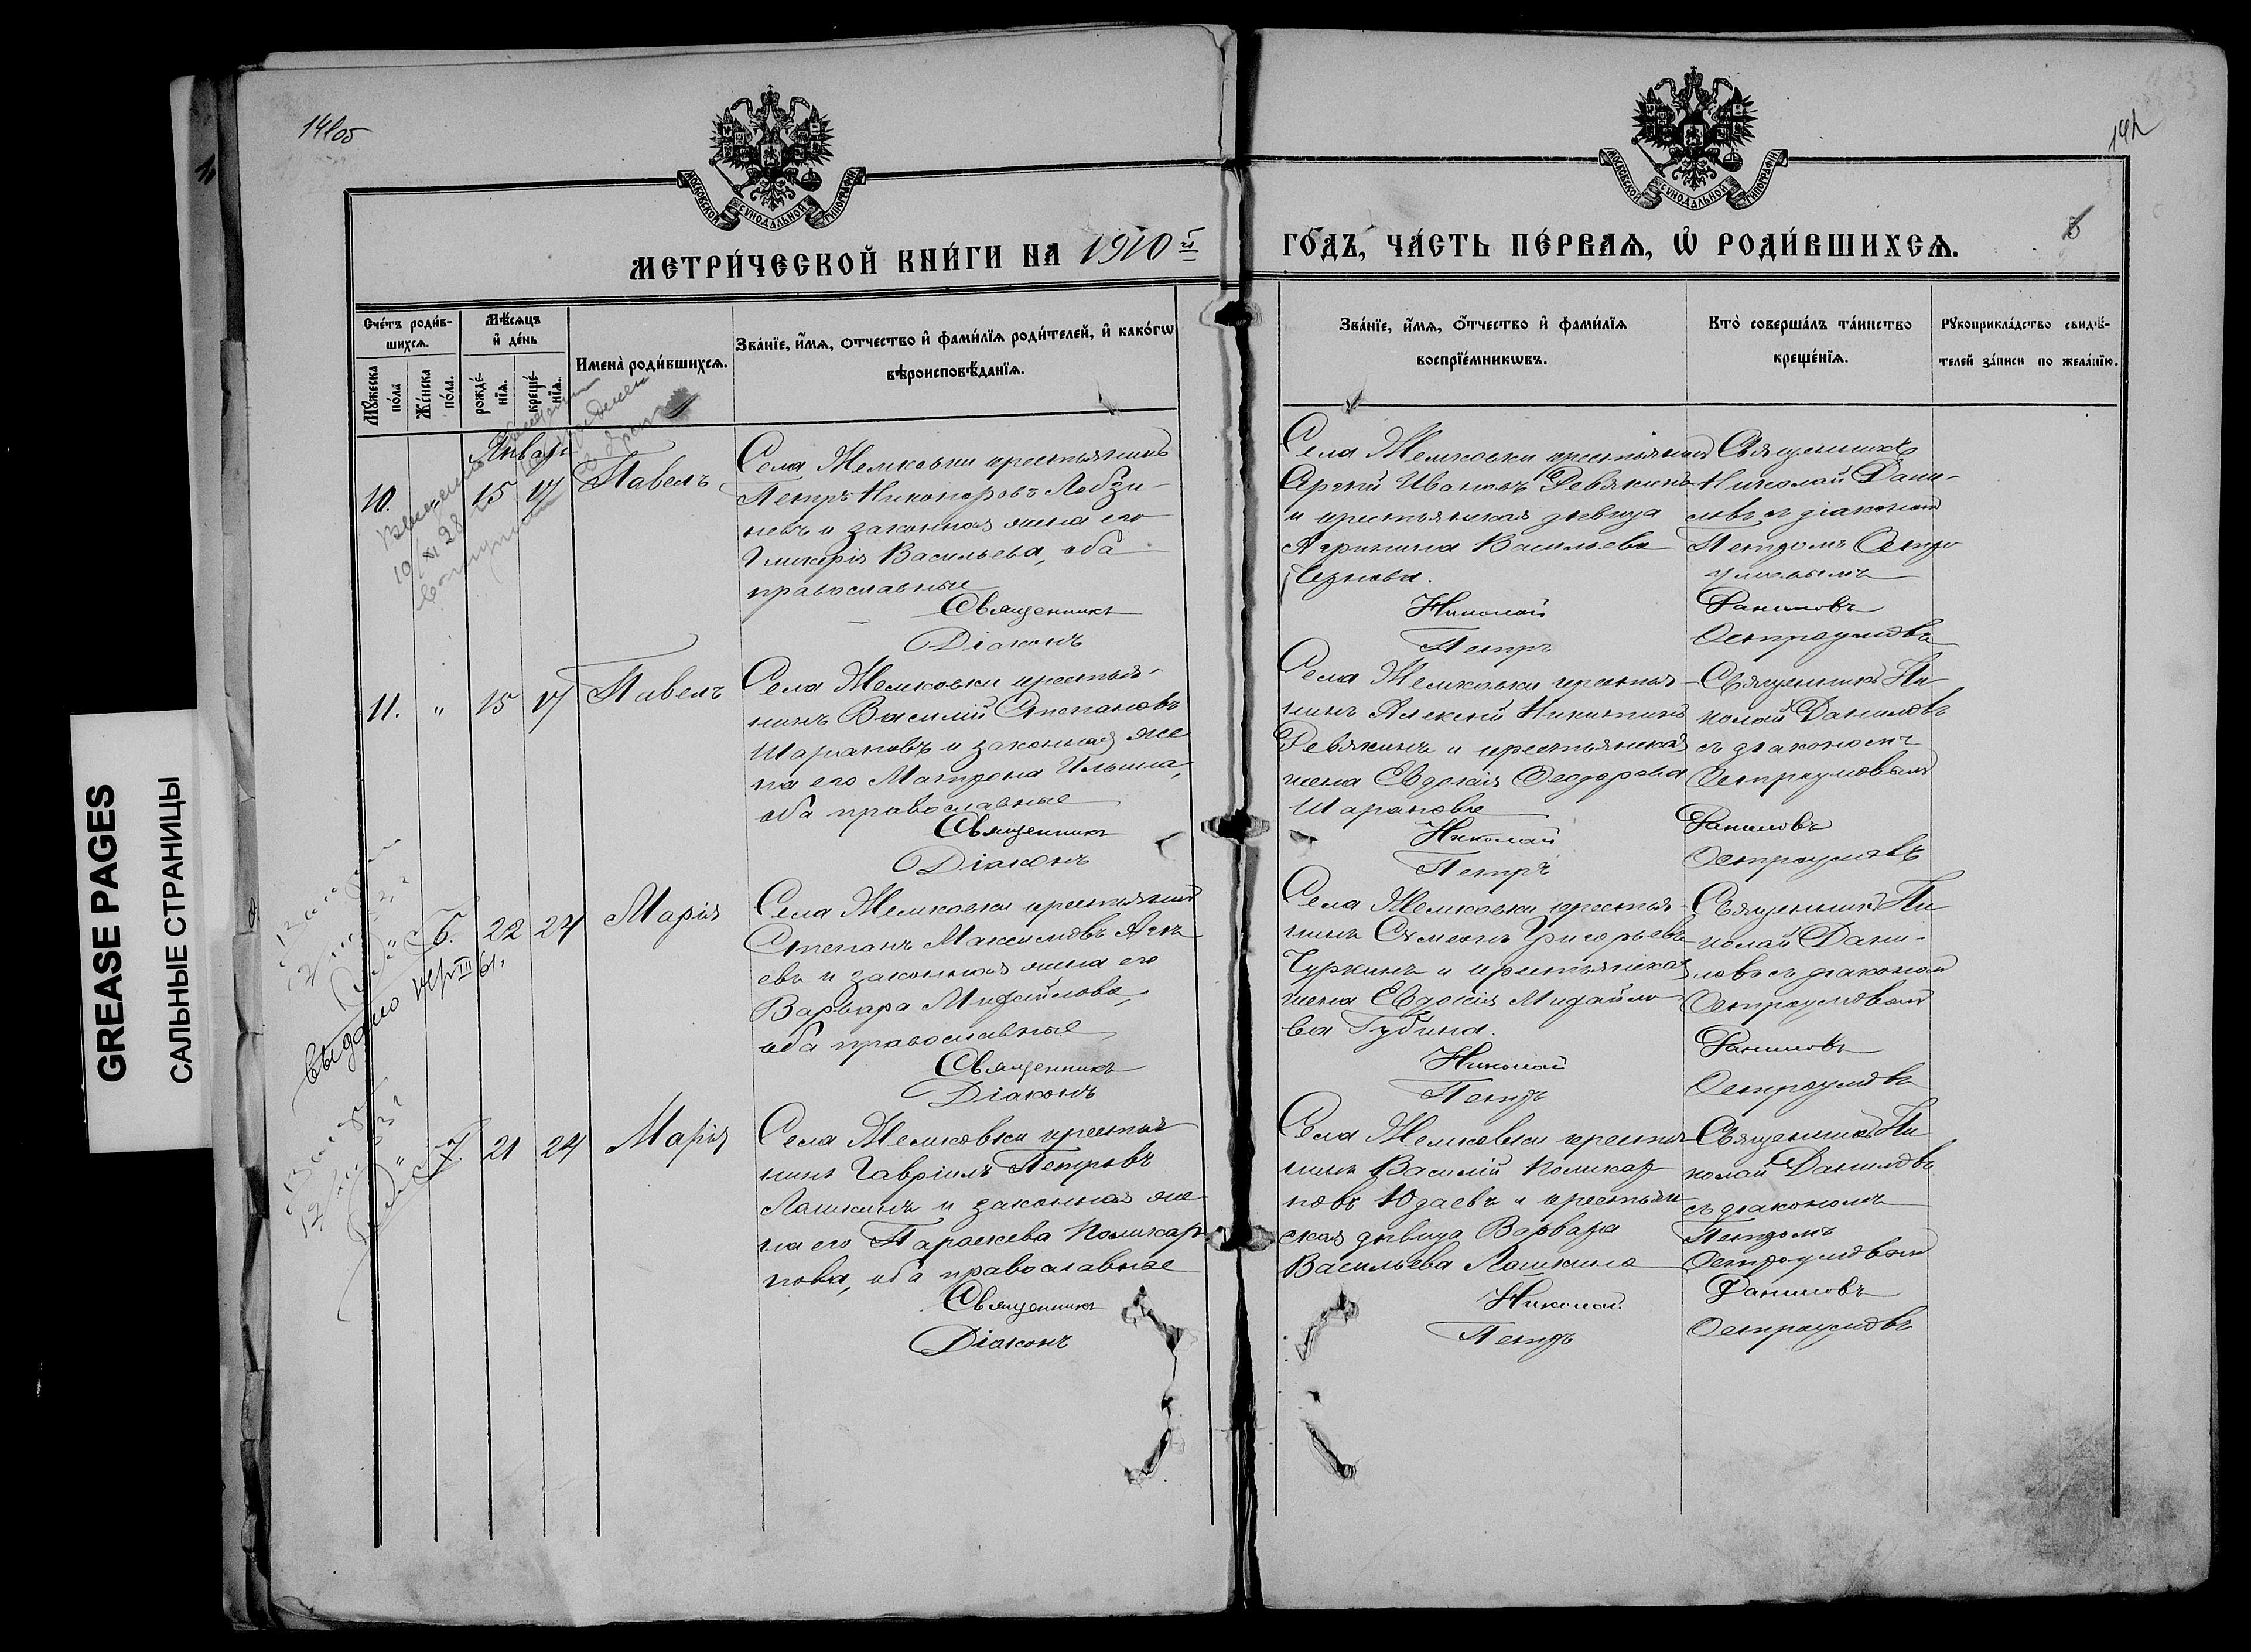 GREASE PAGES
САЛЬНЫЕ СТРАНИЦЫ
141об
142
МОСКОВСКОЙ СУНОДАЛЬНОЙ ТИПОГРАФІИ
МОСКОВСКОЙ СУНОДАЛЬНОЙ ТИПОГРАФІИ
МЕТРИ́ЧЕСКОЙ КНИ́ГИ НА 1910й
ГО́ДЪ, ЧА́СТЬ ПЕ́РВАѦ, Ѡ҆ РОДИ́ВШИХСѦ.
Сче́тъ роди́в-
шихсѧ.
Мꙋ́жеска
по́ла
Же́нска
по́ла.
Мѣ́сѧцъ
и҆ де́нь
рожде́-
нїѧ.
креще́-
нїѧ.
Имена̀ роди́вшихсѧ.
Зва́нїе, и҆́мѧ, о҆́тчество и҆ фами́лїѧ роди́телей, и҆ како́гѡ
вѣроисповѣ́данїѧ.
Зва́нїе, и҆́мѧ, о҆́тчество и҆ фами́лїѧ
воспрїе́мникѡвъ.
Кто̀ соверша́лъ та́инство
креще́нїѧ.
Рꙋкоприкла́дство свидѣ́-
телей за́писи по жела́нїю.
Январь
10.
15
17
Павелъ
Села Жемковки крестьянинъ
Петръ Никаноровъ Лобзи-
невъ и законная жена его
Гликерія Васильева, оба
православные
Священникъ
Діаконъ
Села Жемковки крестьянинъ
Сергій Ивановъ Ревякинъ
и крестьянская дѣвица
Агрипина Васильева
Николай
Петръ
Священникъ
Николай Дани-
ловъ съ діакономъ
Петромъ Остро-
умовымъ
Даниловъ
Остроумовъ
11.
"
15
17
Павелъ
Села Жемковки крестья-
нинъ Василій Степановъ
Шарановъ и законная же
на его Матрона Ильина,
оба православные
Священникъ
Діаконъ
Села Жемковки крестья-
нинъ Алексій Никитинъ
Ревякинъ и крестьянская
жена Евдокія Ѳеодорова
Шаранова
Николай
Петръ
Священникъ Ни-
колай Даниловъ
съ діакономъ
Остроумовымъ
Даниловъ
Остроумовъ
"
6.
22
24
Марія
Села Жемковки крестьянинъ
Степанъ Максимовъ
евъ и законная жена его
Варвара Михайлова,
оба православные
Священникъ
Діаконъ
Села Жемковки крестья-
нинъ Симеонъ Григорьевъ
Чуркинъ и крестьянская
жена Евдокія Михайло-
ва Губина.
Николай
Петръ
Священникъ Ни
колай Дани-
ловъ съ діакономъ
Остроумовымъ
Даниловъ
Остроумовъ
Выдано
"
7.
21
24
Марія
Села Жемковки крестья
нинъ Гавріилъ Петровъ
Лашкинъ и законная же-
на его Параскева Поликар
пова, оба православные
Священникъ
Діаконъ
Села Жемковки крестья-
нинъ Василій Поликар-
повъ Юдаевъ и крестьян-
ская дѣвица Варвара
Васильева Лашкина
Николай
Петръ
Священникъ Ни
колай Даниловъ
съ діакономъ
Петромъ
Остроумовымъ
Даниловъ
Остроумовъ